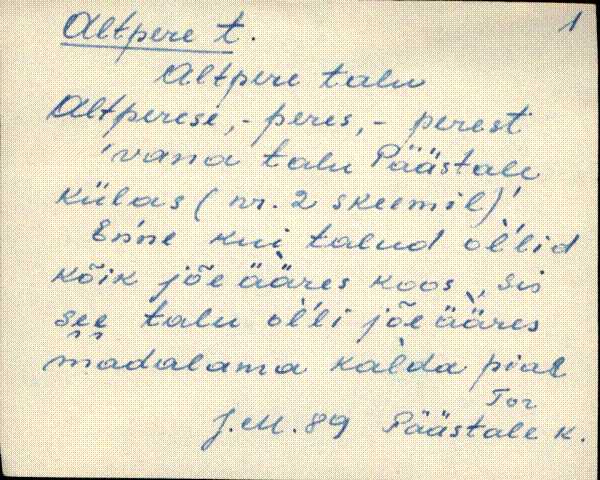 Altpere t. 1
Altpere talu
Altperese, - peres, - perest
'vana talu Päästale
külas (nr. 2 skeemil)'
Enne kui talud ol̀'lid
kõik jõe ääres koos, sis
see talu ol̀'li jõe ääres
madalama kàlda pial
Tor
J.M. 89 Päästale k.